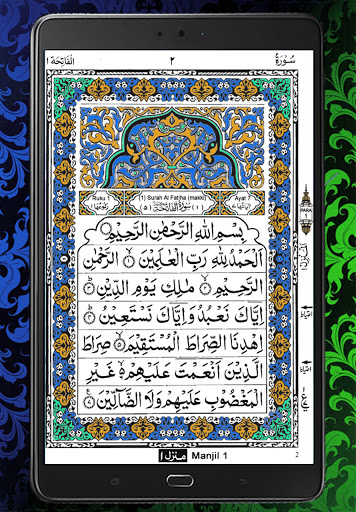 سُوْرَةُ ٢ اَلْفَاتِحَة ١
Ruku 1 (1) Surah Al Fatiha (makki) Ayat 7
رُكُوْعُهَا ١ (١) سُوْرَةُ الْفَاتِحَةِ (٥) اٰيَاتُهَا ٧
بِسْمِ اللّٰهِ الرَّحْمٰنِ الرَّحِيْمِ
اَلْحَمْدُ لِلّٰهِ رَبِّ الْعٰلَمِيْنَ ۝ الرَّحْمٰنِ
الرَّحِيْمِ ۝ مٰلِكِ يَوْمِ الدِّيْنِ ۝
اِيَّاكَ نَعْبُدُ وَاِيَّاكَ نَسْتَعِيْنُ ۝
اِهْدِنَا الصِّرَاطَ الْمُسْتَقِيْمَ ۝ صِرَاطَ
الَّذِيْنَ اَنْعَمْتَ عَلَيْهِمْ ۝ غَيْرِ
الْمَغْضُوْبِ عَلَيْهِمْ وَلَا الضَّآلِّيْنَ ۝
PARA
1
منزل ١
Manjil 1
2